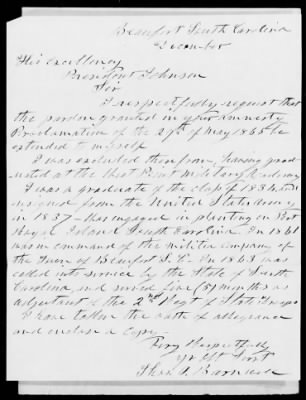 Beaufort South Carolina
December
His excellency
President Johnson
Sir
I respectfully request that
the pardon granted in your Amnesty
Proclamation of the 29th of May 1865 be
extended to myself
I was excluded therefrom, having grad-
uated at the West Point Military Academy
I was a graduate of the class of 1834, and
resigned from the United States Army
in 1837 - Was engaged in planting on Port
Royal Island South Carolina. In 1861
was in command of the militia company of
the Town of Beaufort S.C. In 1863 was
called into service by the State of South
Carolina, and served five (5) months as
adjutant of the 2nd Regt of State Troops
I have taken the oath of allegiance
and enclose a copy.
Very Respectfully
yr Obt Servt
Thos. Barnwell